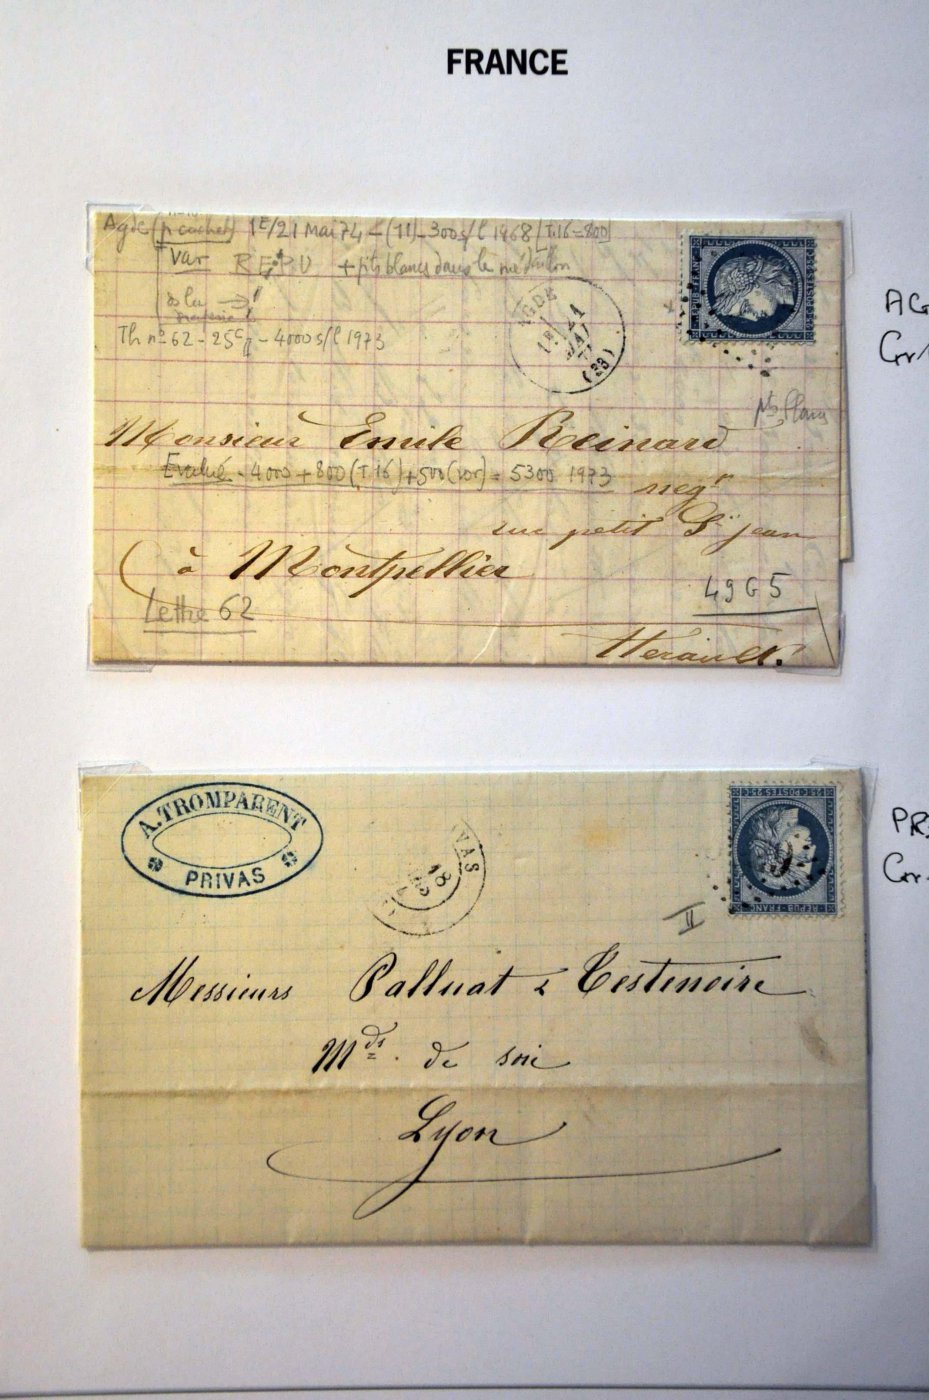 FRANCE
Agde (pt cachet) 1E/21 Mai 74 - (11) - 300 s/l 1468 [T.16 = 800]
var R E P U + pts blancs dans le médaillon
ds la
Th no 62 - 25c - 4000 s/l 1973
AGDE
21
(33)
pts blancs
Monsieur Emile Reinard
Evalué - 4000 + 800 (T.16) + 500 (var) = 5300 1973
negt
rue petit St jean
à Montpellier
49 G 5
Lettre 62
Herault.
AG
A. TROMPARENT
PRIVAS
VAS
18
25·C·POSTES·25·C
REPUB·FRANC
II
PR
Messieurs Palluat & Testenoire
Mds. de soie
Lyon